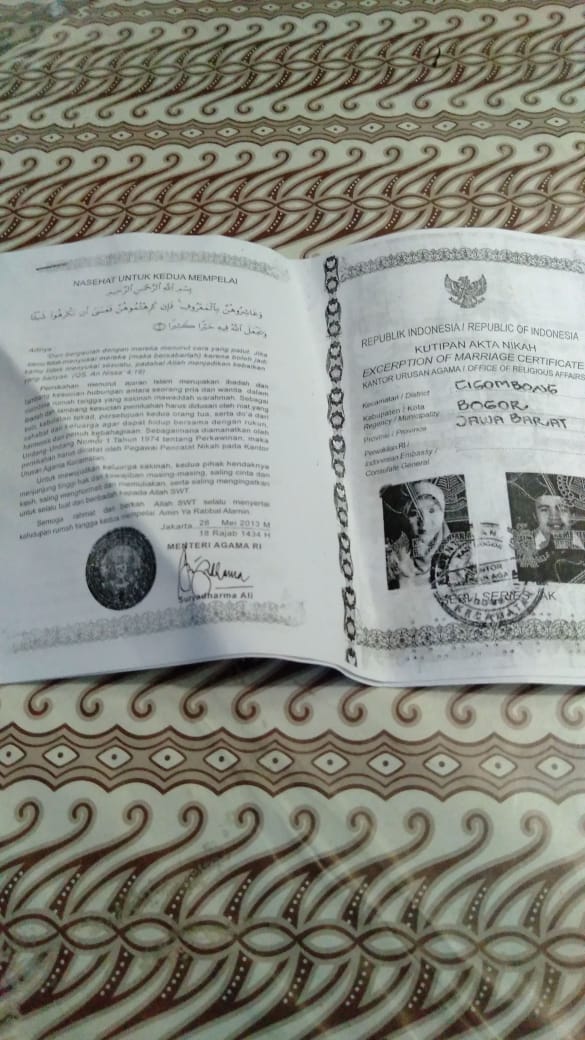 NASEHAT UNTUK KEDUA MEMPELAI
بِسْمِ اللهِ الرَّحْمٰنِ الرَّحِيْمِ
وَعَاشِرُوْهُنَّ بِالْمَعْرُوْفِ فَاِنْ كَرِهْتُمُوْهُنَّ فَعَسٰى اَنْ تَكْرَهُوْا شَيْئًا
وَيَجْعَلَ اللهُ فِيْهِ خَيْرًا كَثِيْرًا
Artinya :
Dan bergaulah dengan mereka menurut cara yang patut. Jika
kamu tidak menyukai mereka (maka bersabarlah) karena boleh jadi
kamu tidak menyukai sesuatu, padahal Allah menjadikan kebaikan
yang banyak (QS. An Nissa' 4:19)
Pernikahan menurut ajaran Islam merupakan ibadah dan
kesucian hubungan antara seorang pria dan wanita dalam
rumah tangga yang sakinah mawaddah warahmah. Sebagai
dan lambang kesucian pernikahan harus didasari oleh niat yang
suci, kebulatan tekad, persetujuan kedua orang tua, serta do'a dari
sahabat dan keluarga agar dapat hidup bersama dengan rukun,
harmonis dan penuh kebahagiaan. Sebagaimana diamanatkan oleh
Undang-Undang Nomor 1 Tahun 1974 tentang Perkawinan, maka
pernikahan harus dicatat oleh Pegawai Pencatat Nikah pada Kantor
Urusan Agama Kecamatan.
Untuk mewujudkan keluarga sakinah, kedua pihak hendaknya
menjunjung tinggi hak dan kewajiban masing-masing, saling cinta dan
kasih, saling menghormati dan memuliakan, serta saling mengingatkan
untuk selalu taat dan beribadah kepada Allah SWT.
Semoga rahmat dan berkah Allah SWT selalu menyertai
kehidupan rumah tangga kedua mempelai Amin Ya Rabbal Alamin.
Jakarta, 28 Mei 2013 M
18 Rajab 1434 H
MENTERI AGAMA RI
Suryadharma Ali
REPUBLIK INDONESIA / REPUBLIC OF INDONESIA
KUTIPAN AKTA NIKAH
EXCERPTION OF MARRIAGE CERTIFICATE
KANTOR URUSAN AGAMA / OFFICE OF RELIGIOUS AFFAIRS
Kecamatan / District CIGOMBONG
Kabupaten / Kota
Regency / Municipality BOGOR
Provinsi / Province JAWA BARAT
Perwakilan RI /
Indonesian Embassy /
Consulate General
KANTOR
KECAMATAN
SERIES AK